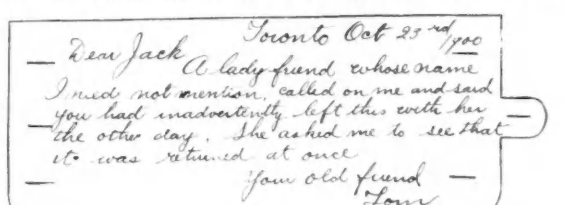 Toronto Oct 23rd/900
Dear Jack
A lady friend whose name
I need not mention, called on me and said
you had inadvertently left this with her
the other day. She asked me to see that
it was returned at once
Your old friend
Tom